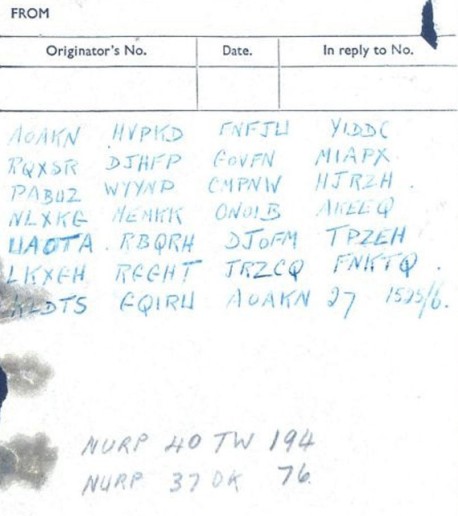 FROM
Originator's No. Date. In reply to No.
AOAKN HVPKD FNFJU YIDDC
RQXSR DJHFP GOVFN MIAPX
PABUZ WYYNP CMPNW HJRZH
NLXKG MEMKK ONOIB AKEEQ
UAOTA RBQRH DJOFM TPZEH
LKXGH RGGHT JRZCQ FNKTQ
KLDTS GQIRU AOAKN 27 1525/6.
NURP 40 TW 194
NURP 37 DK 76